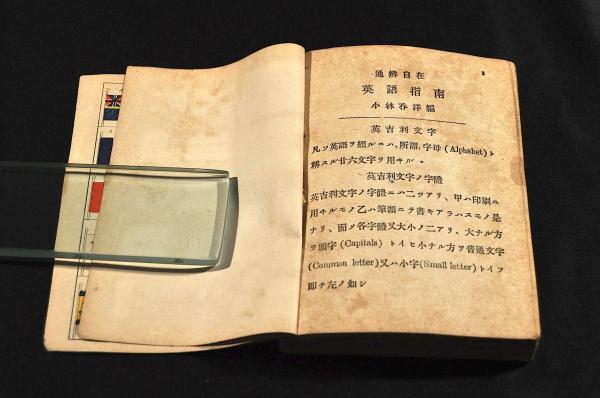 通辨自在
英語指南
小林乔洋編
英吉利文字
凡ソ英語ヲ綴ルニハ、所謂、字母(Alphabet)ト
稱スル廿六文字ヲ用ヰル。
英吉利文字ノ字體
英吉利文字ノ字體ニハ二ツアリ、甲ハ印刷ニ
用ヰルモノ乙ハ筆頭ニテ書キアラハスモノ是
ナリ、而ノ各字體又大小ノ二アリ、大ナル方
ヲ頭字(Capitals)トイヒ小ナル方ヲ普通文字
(Common letter)又ハ小字(Small letter)トイフ
即チ左ノ如シ